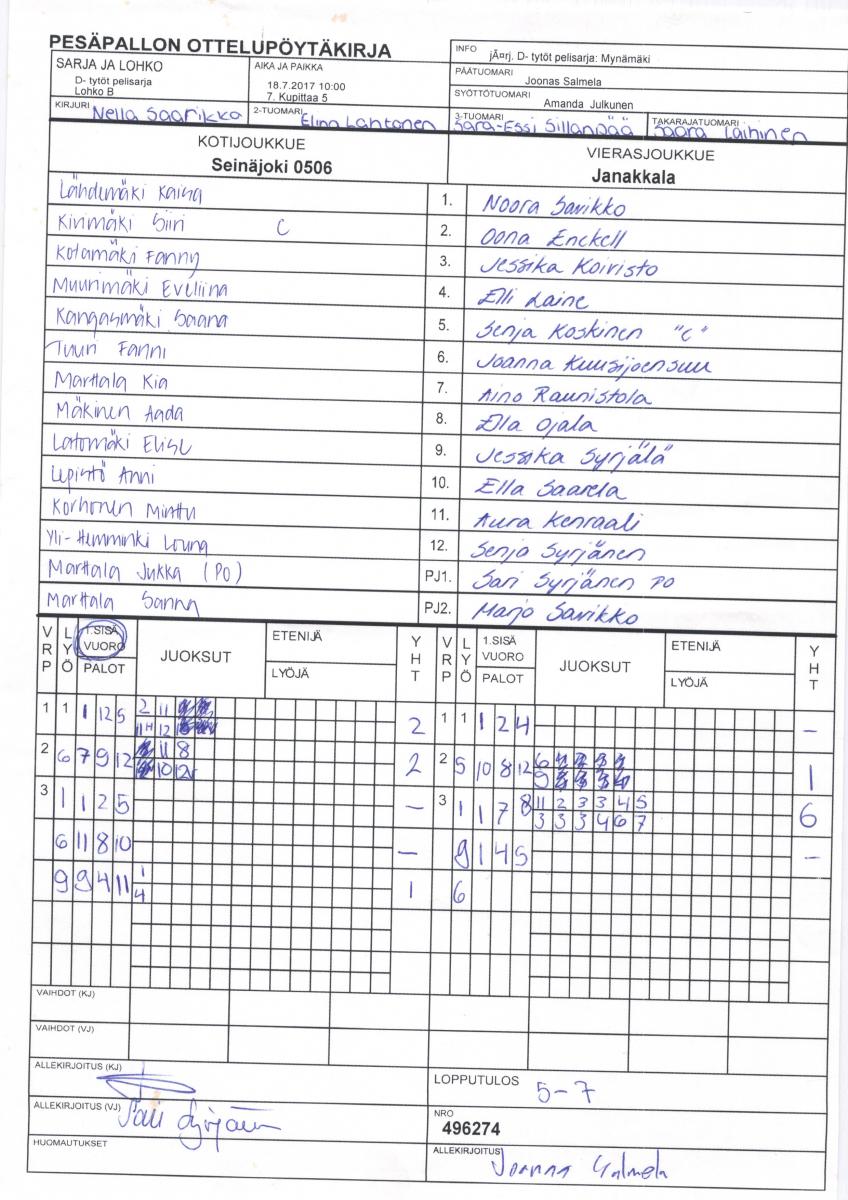 PESÄPALLON OTTELUPÖYTÄKIRJA
INFO jÃ¤rj. D- tytöt pelisarja: Mynämäki
SARJA JA LOHKO
D- tytöt pelisarja
Lohko B
AIKA JA PAIKKA
18.7.2017 10:00
7. Kupittaa 5
PÄÄTUOMARI
Joonas Salmela
SYÖTTÖTUOMARI
Amanda Julkunen
KIRJURI Nella Saarikko
2-TUOMARI Elina Lahtonen
3-TUOMARI Sara-Essi Sillanpää
TAKARAJATUOMARI Saara Laihinen
KOTIJOUKKUE
Seinäjoki 0506
VIERASJOUKKUE
Janakkala
Lähdemäki Kaisa 1. Noora Savikko
Kivimäki Siiri C 2. Oona Enckell
Kotamäki Fanny 3. Jessika Koivisto
Muurimäki Eveliina 4. Elli Laine
Kangasmäki Saana 5. Senja Koskinen "C"
Tuuri Fanni 6. Joanna Kuusijoensuu
Marttala Kia 7. Aino Raunistola
Mäkinen Aada 8. Ella Ojala
Latomäki Elise 9. Jessika Syrjälä
Lepistö Anni 10. Ella Saarela
Korhonen Minttu 11. Aura Kenraali
Yli-Hemminki Louna 12. Senja Syrjänen
Marttala Jukka (PO) PJ1. Sari Syrjänen PO
Marttala Sanna PJ2. Marjo Savikko
VRP LYÖ 1.SISÄ VUORO PALOT JUOKSUT ETENIJÄ LYÖJÄ YHT VRP LYÖ 1.SISÄ VUORO PALOT JUOKSUT ETENIJÄ LYÖJÄ YHT
1 1 1 12 5 2 11 2 1 1 1 2 4 -
12
2 6 7 9 12 11 8 2 2 5 10 8 12 6 1
10 12 9
3 1 1 2 5 - 3 1 1 7 8 11 2 3 3 4 5 6
3 3 3 4 6 7
6 11 8 10 - 9 1 4 5 -
9 9 4 11 1 1 6
4
VAIHDOT (KJ)
VAIHDOT (VJ)
ALLEKIRJOITUS (KJ)
LOPPUTULOS 5-7
ALLEKIRJOITUS (VJ) Sari Syrjänen
NRO
496274
HUOMAUTUKSET
ALLEKIRJOITUS Joanna Salmela